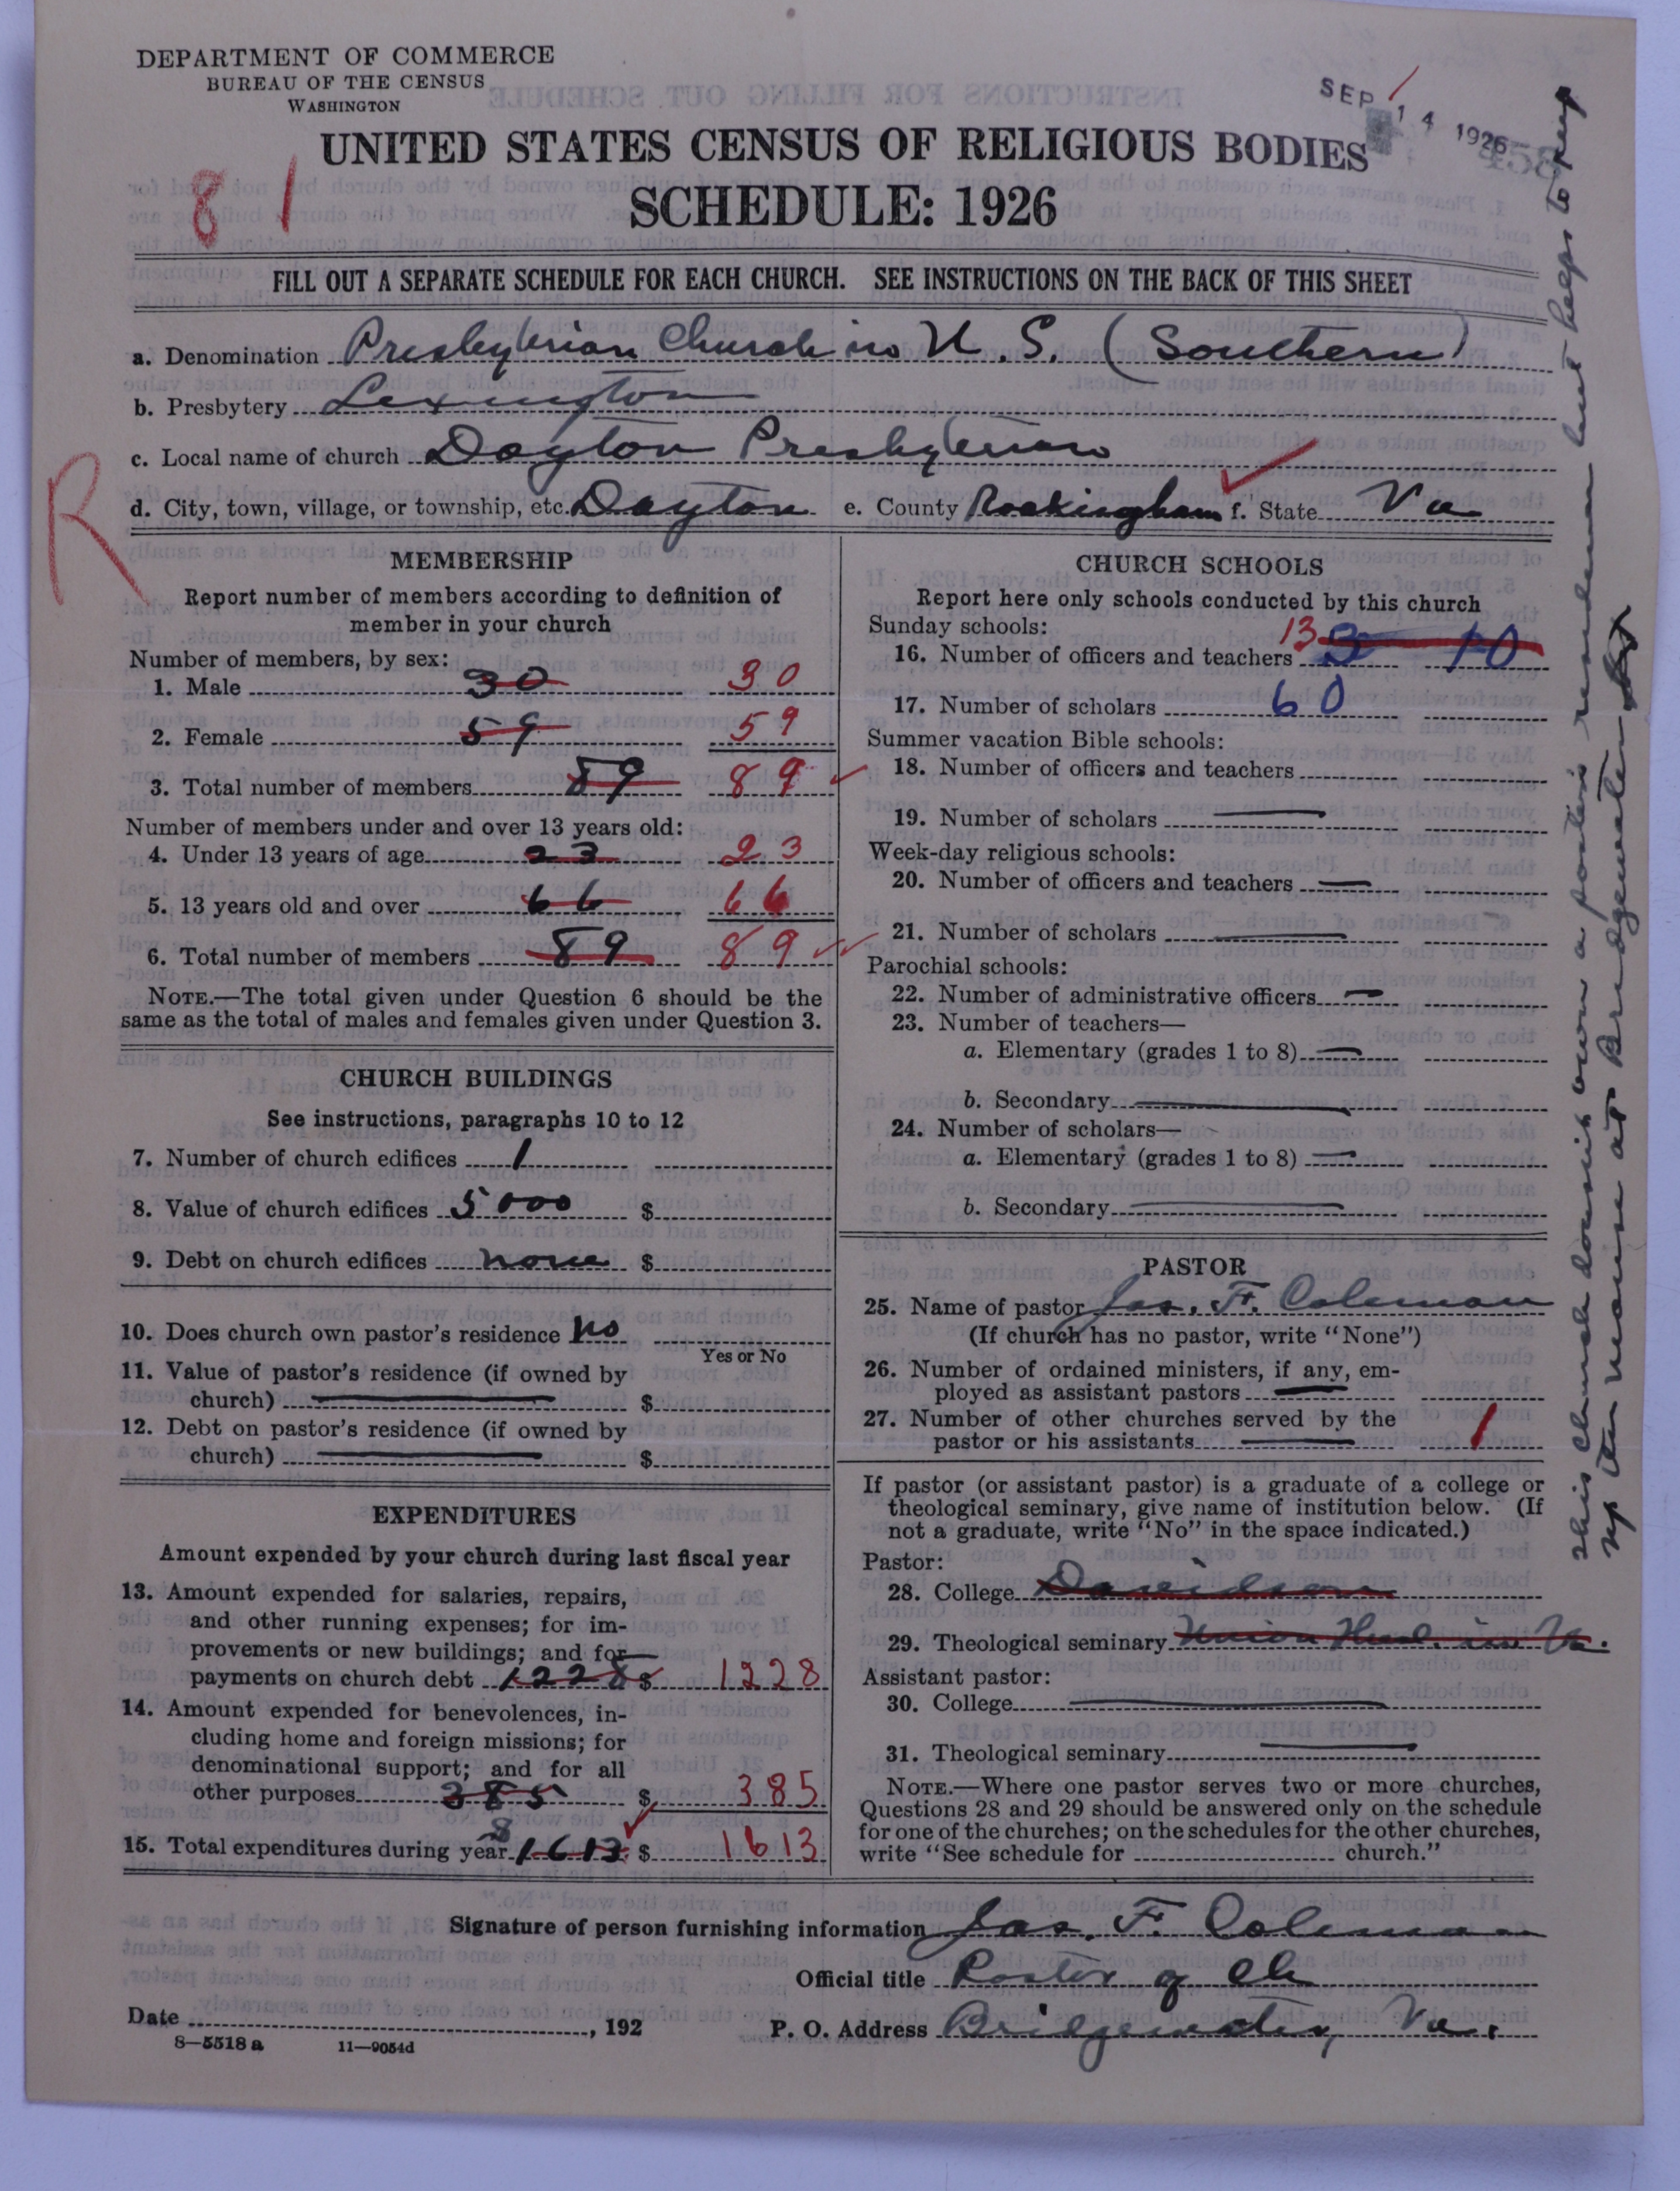 DEPARTMENT OF COMMERCE
BUREAU OF THE CENSUS
WASHINGTON
SEP 14 1926
UNITED STATES CENSUS OF RELIGIOUS BODIES
81
SCHEDULE: 1926
FILL OUT A SEPARATE SCHEDULE FOR EACH CHURCH. SEE INSTRUCTIONS ON THE BACK OF THIS SHEET
a. Denomination Presbyterian Church in U.S. (Southern)
b. Presbytery Lexington
c. Local name of church Dayton Presbyterian
R
d. City, town, village, or township, etc. Dayton e. County Rockingham f. State Va
MEMBERSHIP
Report number of members according to definition of
member in your church
Number of members, by sex:
1. Male 30 30
2. Female 59 59
3. Total number of members 89 89
Number of members under and over 13 years old:
4. Under 13 years of age 23 23
5. 13 years old and over 66 66
6. Total number of members 89 89
NOTE.—The total given under Question 6 should be the
same as the total of males and females given under Question 3.
CHURCH BUILDINGS
See instructions, paragraphs 10 to 12
7. Number of church edifices 1
8. Value of church edifices 5000 $
9. Debt on church edifices none $
10. Does church own pastor's residence no
Yes or No
11. Value of pastor's residence (if owned by
church) $
12. Debt on pastor's residence (if owned by
church) $
EXPENDITURES
Amount expended by your church during last fiscal year
13. Amount expended for salaries, repairs,
and other running expenses; for im-
provements or new buildings; and for
payments on church debt 1228 $ 1228
14. Amount expended for benevolences, in-
cluding home and foreign missions; for
denominational support; and for all
other purposes 385 $ 385
15. Total expenditures during year 1613 $ 1613
CHURCH SCHOOLS
Report here only schools conducted by this church
Sunday schools:
16. Number of officers and teachers 13 3 10
17. Number of scholars 60
Summer vacation Bible schools:
18. Number of officers and teachers
19. Number of scholars
Week-day religious schools:
20. Number of officers and teachers
21. Number of scholars
Parochial schools:
22. Number of administrative officers
23. Number of teachers—
a. Elementary (grades 1 to 8)
b. Secondary
24. Number of scholars—
a. Elementary (grades 1 to 8)
b. Secondary
PASTOR
25. Name of pastor Jas. F. Coleman
(If church has no pastor, write "None")
26. Number of ordained ministers, if any, em-
ployed as assistant pastors
27. Number of other churches served by the
pastor or his assistants 1
If pastor (or assistant pastor) is a graduate of a college or
theological seminary, give name of institution below. (If
not a graduate, write "No" in the space indicated.)
Pastor:
28. College Davidson
29. Theological seminary Union in Va.
Assistant pastor:
30. College
31. Theological seminary
NOTE.—Where one pastor serves two or more churches,
Questions 28 and 29 should be answered only on the schedule
for one of the churches; on the schedules for the other churches,
write "See schedule for church."
Signature of person furnishing information Jas. F. Coleman
Official title Pastor of Ch
Date , 192
P. O. Address Bridgewater, Va.
8—5518 a 11—9054d
This church doesn't own a pastor's residence but helps to keep
up the manse at Bridgewater